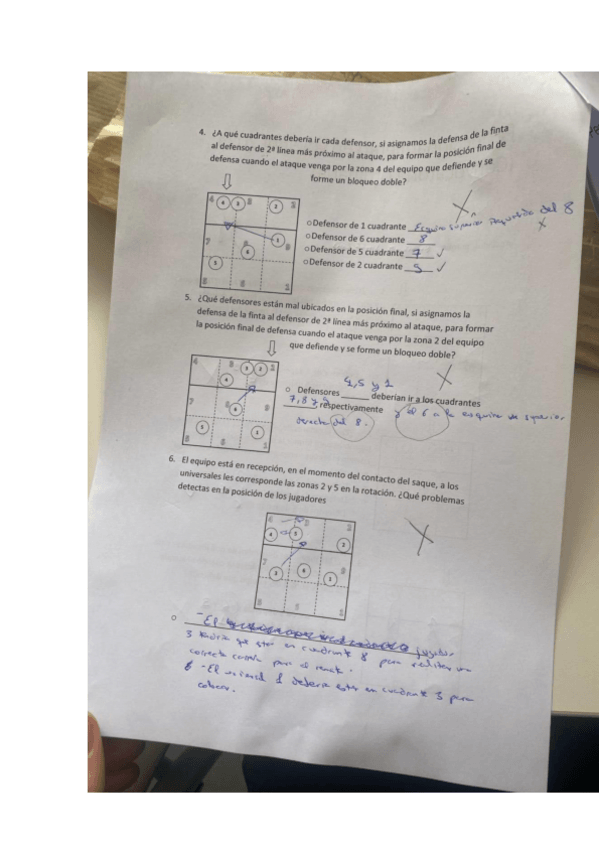 4. ¿A qué cuadrantes debería ir cada defensor, si asignamos la defensa de la finta
al defensor de 2ª línea más próximo al ataque, para formar la posición final de
defensa cuando el ataque venga por la zona 4 del equipo que defiende y se
forme un bloqueo doble?
o Defensor de 1 cuadrante Esquina superior izquierda del 8
o Defensor de 6 cuadrante 8
o Defensor de 5 cuadrante 7
o Defensor de 2 cuadrante 5
5. ¿Qué defensores están mal ubicados en la posición final, si asignamos la
defensa de la finta al defensor de 2ª línea más próximo al ataque, para formar
la posición final de defensa cuando el ataque venga por la zona 2 del equipo
que defiende y se forme un bloqueo doble?
o Defensores 4, 5 y 1 deberían ir a los cuadrantes
7, 8 y respectivamente y el 6 a la esquina superior
derecha del 8.
6. El equipo está en recepción, en el momento del contacto del saque, a los
universales les corresponde las zonas 2 y 5 en la rotación. ¿Qué problemas
detectas en la posición de los jugadores
o - El jugador
3 tendría que estar en cuadrante 8 para realizar una
correcta para el remate.
- El universal deberia estar en cuadrante 3 para
colocar.